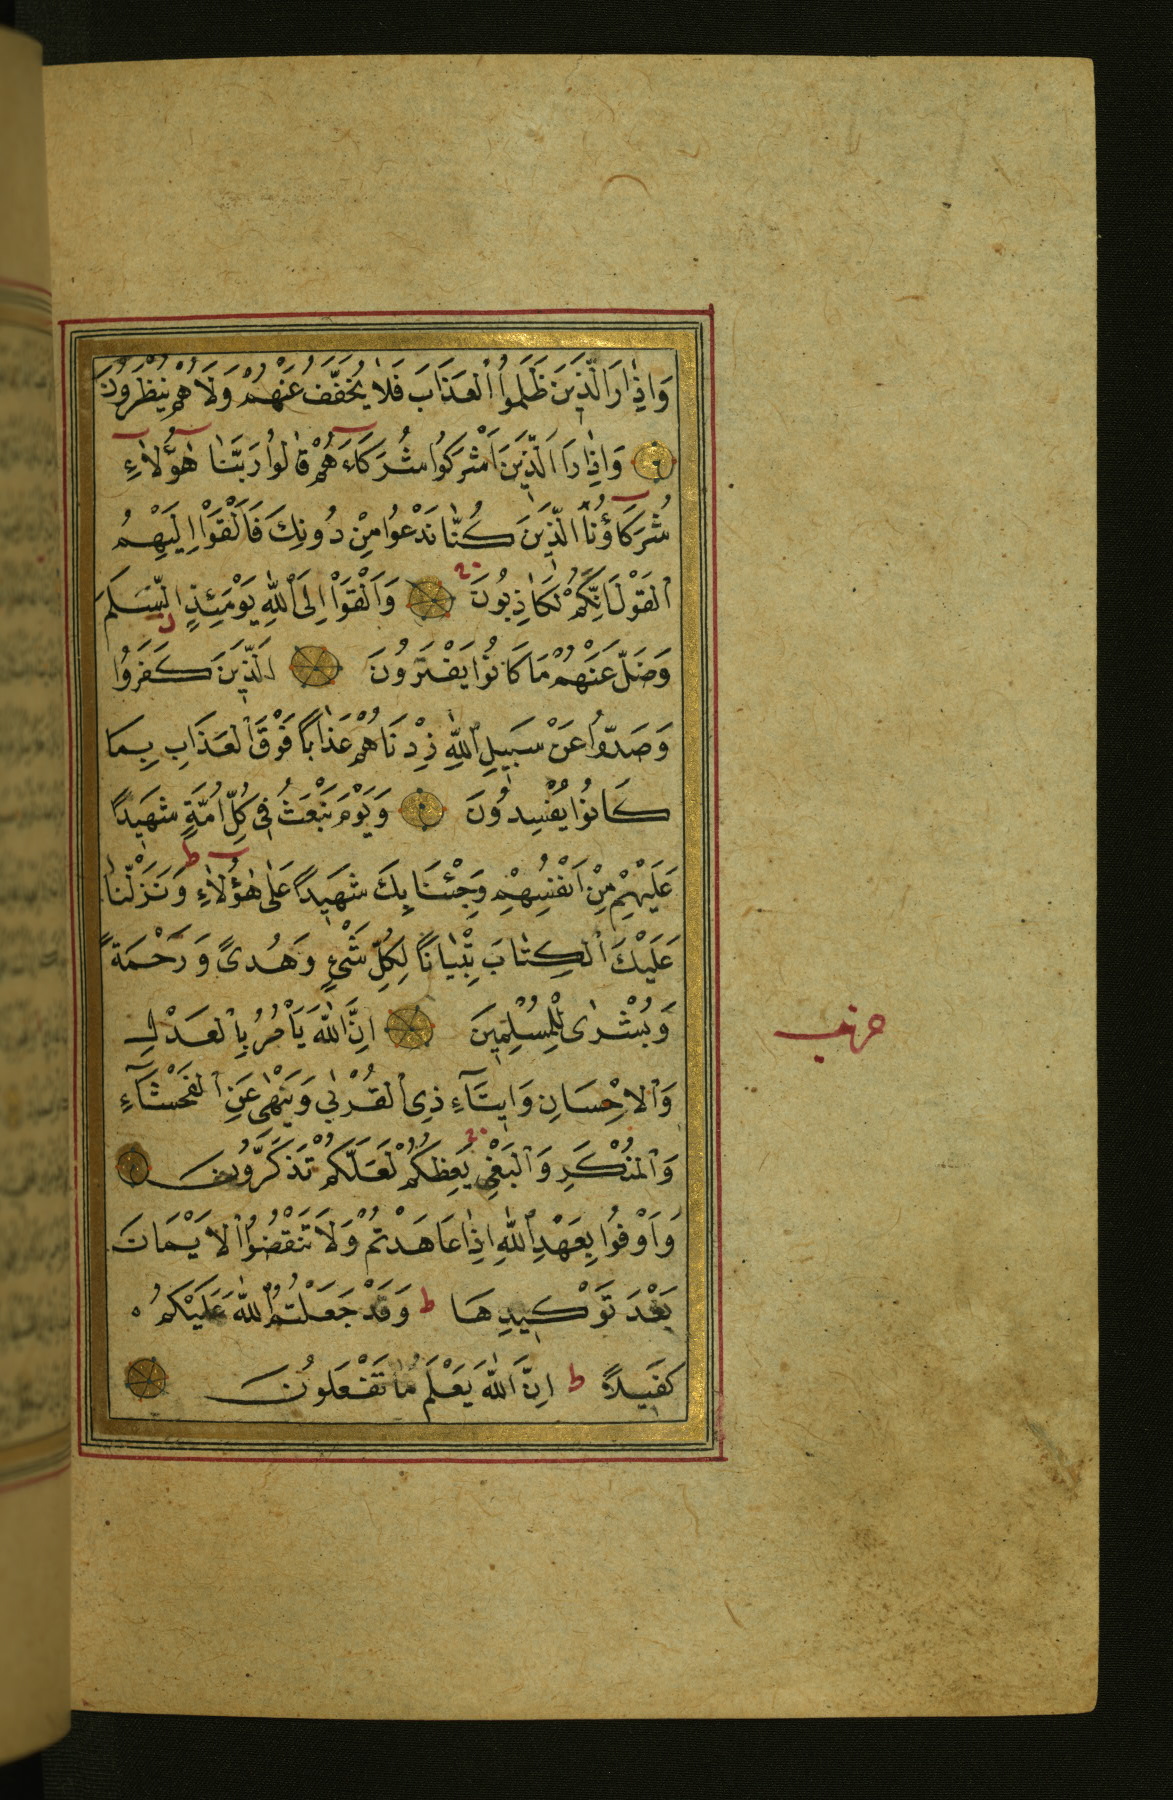 وَاِذَا رَاَ الَّذِينَ ظَلَمُوا الْعَذَابَ فَلَا يُخَفَّفُ عَنْهُمْ وَلَا هُمْ يُنْظَرُونَ
وَاِذَا رَاَ الَّذِينَ اَشْرَكُوا شُرَكَاءَهُمْ قَالُوا رَبَّنَا هٰؤُلَاءِ
شُرَكَاؤُنَا الَّذِينَ كُنَّا نَدْعُوا مِنْ دُونِكَ فَاَلْقَوْا اِلَيْهِمُ
الْقَوْلَ اِنَّكُمْ لَكَاذِبُونَ وَاَلْقَوْا اِلَى اللّٰهِ يَوْمَئِذٍ السَّلَمَ
وَضَلَّ عَنْهُمْ مَا كَانُوا يَفْتَرُونَ اَلَّذِينَ كَفَرُوا
وَصَدُّوا عَنْ سَبِيلِ اللّٰهِ زِدْنَاهُمْ عَذَابًا فَوْقَ الْعَذَابِ بِمَا
كَانُوا يُفْسِدُونَ وَيَوْمَ نَبْعَثُ فِي كُلِّ اُمَّةٍ شَهِيدًا
عَلَيْهِمْ مِنْ اَنْفُسِهِمْ وَجِئْنَا بِكَ شَهِيدًا عَلٰى هٰؤُلَاءِ ط وَنَزَّلْنَا
عَلَيْكَ الْكِتَابَ تِبْيَانًا لِكُلِّ شَيْءٍ وَهُدًى وَرَحْمَةً
وَبُشْرٰى لِلْمُسْلِمِينَ اِنَّ اللّٰهَ يَاْمُرُ بِالْعَدْلِ
حزب
وَالْاِحْسَانِ وَاِيتَآءِ ذِي الْقُرْبٰى وَيَنْهٰى عَنِ الْفَحْشَآءِ
وَالْمُنْكَرِ وَالْبَغْيِ يَعِظُكُمْ لَعَلَّكُمْ تَذَكَّرُونَ
وَاَوْفُوا بِعَهْدِ اللّٰهِ اِذَا عَاهَدْتُمْ وَلَا تَنْقُضُوا الْاَيْمَانَ
بَعْدَ تَوْكِيدِهَا ط وَقَدْ جَعَلْتُمُ اللّٰهَ عَلَيْكُمْ
كَفِيلًا ط اِنَّ اللّٰهَ يَعْلَمُ مَا تَفْعَلُونَ